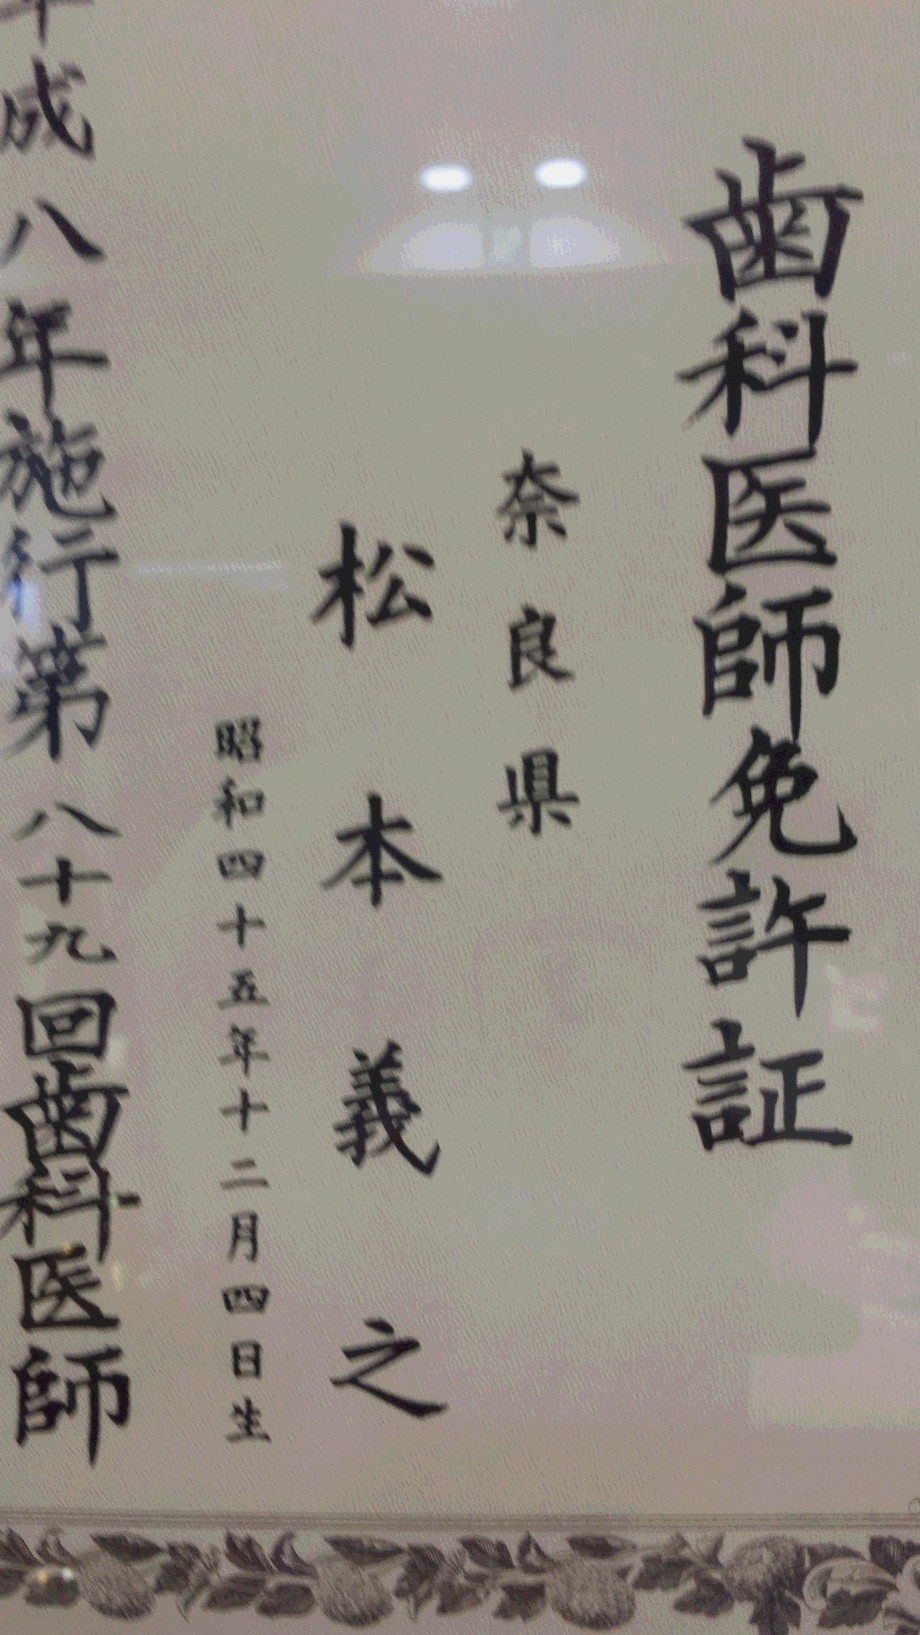 歯科医師免許証
奈良県
松本義之
昭和四十五年十二月四日生
平成八年施行第八十九回歯科医師